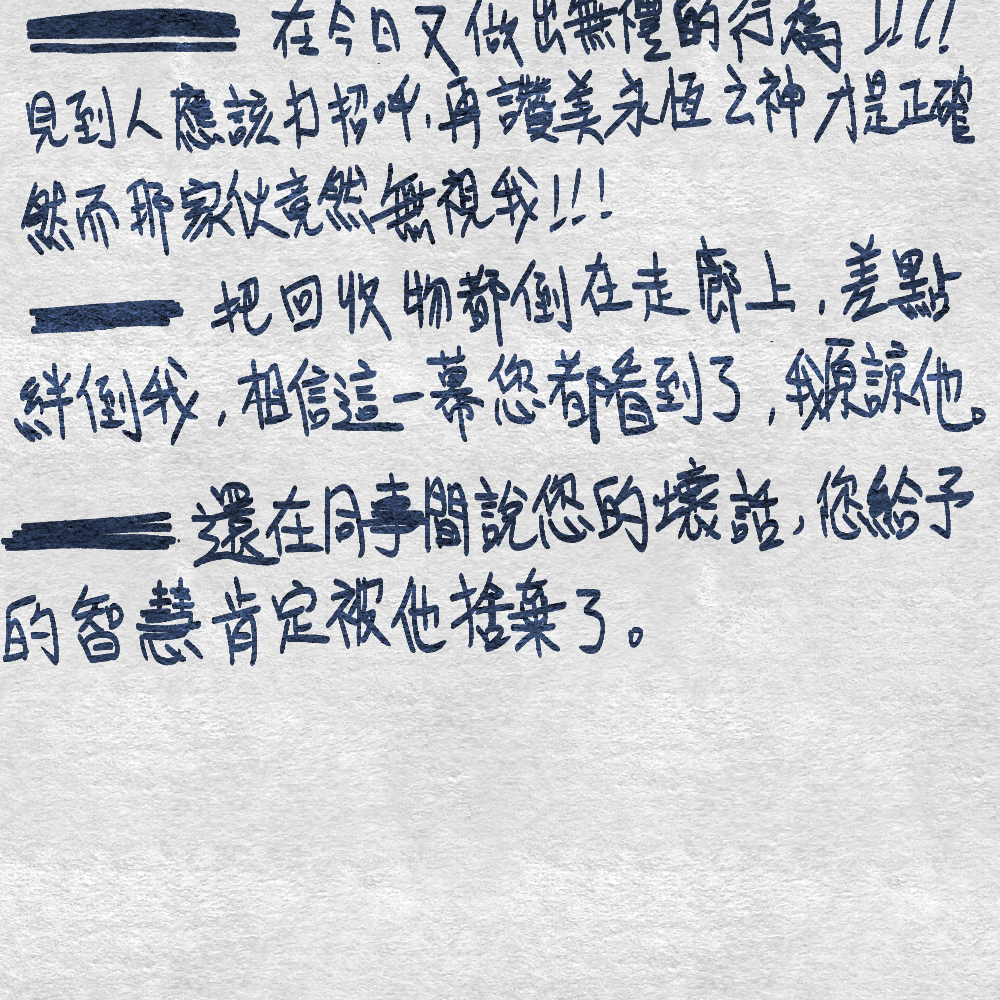 在今日又做出無禮的行為!!!!
見到人應該打招呼,再讚美永恆之神才是正確
然而那家伙竟然無視我!!!
把回收物都倒在走廊上,差點
絆倒我,相信這一幕您都看到了,我原諒他。
還在同事間說您的壞話,您給予
的智慧肯定被他捨棄了。